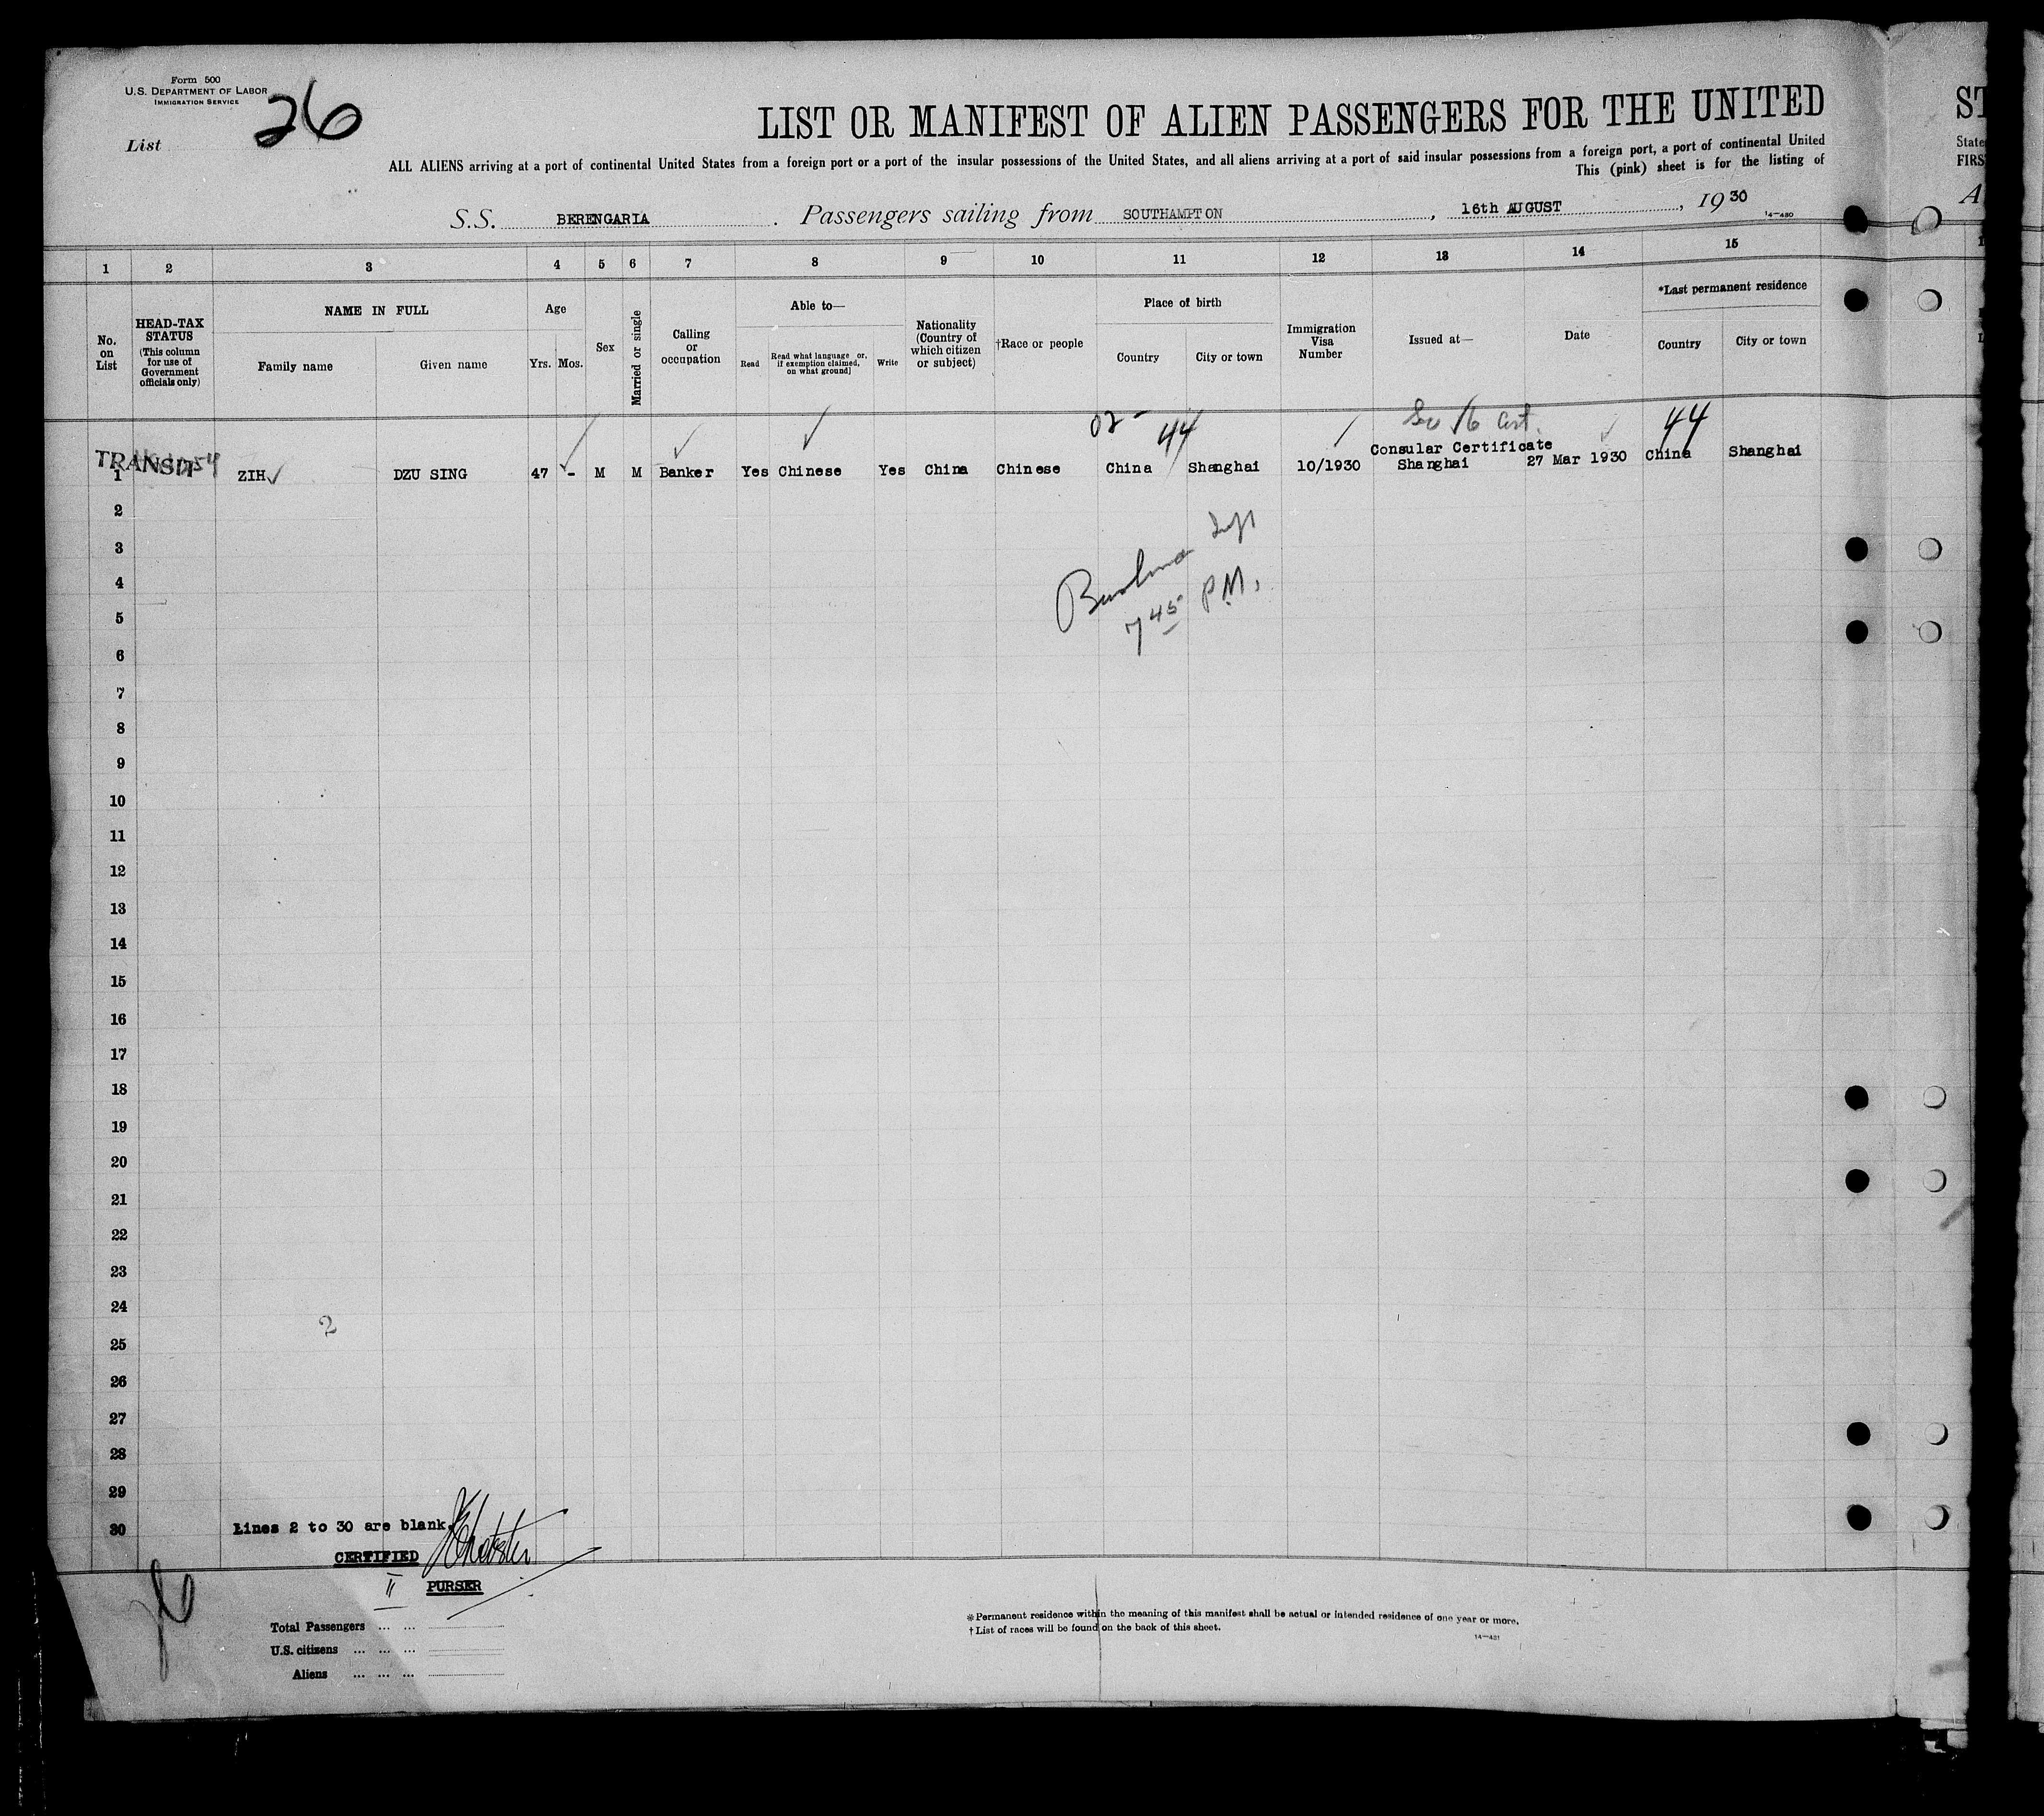 Form 500
U.S. DEPARTMENT OF LABOR
IMMIGRATION SERVICE
List 26
LIST OR MANIFEST OF ALIEN PASSENGERS FOR THE UNITED
ALL ALIENS arriving at a port of continental United States from a foreign port or a port of the insular possessions of the United States, and all aliens arriving at a port of said insular possessions from a foreign port, a port of continental United
This (pink) sheet is for the listing of
S.S. BERENGARIA. Passengers sailing from SOUTHAMPTON, 16th AUGUST, 1930
14-430
1 2 3 4 5 6 7 8 9 10 11 12 13 14 15
No. on List
HEAD-TAX STATUS (This column for use of Government officials only)
NAME IN FULL
Family name Given name
Age
Yrs. Mos.
Sex
Married or single
Calling or occupation
Able to—
Read Read what language or, if exemption claimed, on what ground] Write
Nationality (Country of which citizen or subject)
†Race or people
Place of birth
Country City or town
Immigration Visa Number
Issued at—
Date
*Last permanent residence
Country City or town
02- 44 44
TRANSIT
Consular Certificate
1 ZIH DZU SING 47 - M M Banker Yes Chinese Yes China Chinese China Shanghai 10/1930 Shanghai 27 Mar 1930 China Shanghai
2
3
4
7 45 P.M.
5
6
7
8
9
10
11
12
13
14
15
16
17
18
19
20
21
22
23
24
2
25
26
27
28
29
30
Lines 2 to 30 are blank.
CERTIFIED
II PURSER
Total Passengers ... ...
U.S. citizens ... ... ...
Aliens ... ... ...
※Permanent residence within the meaning of this manifest shall be actual or intended residence of one year or more.
†List of races will be found on the back of this sheet.
14-431
ST
State
FIRS
A